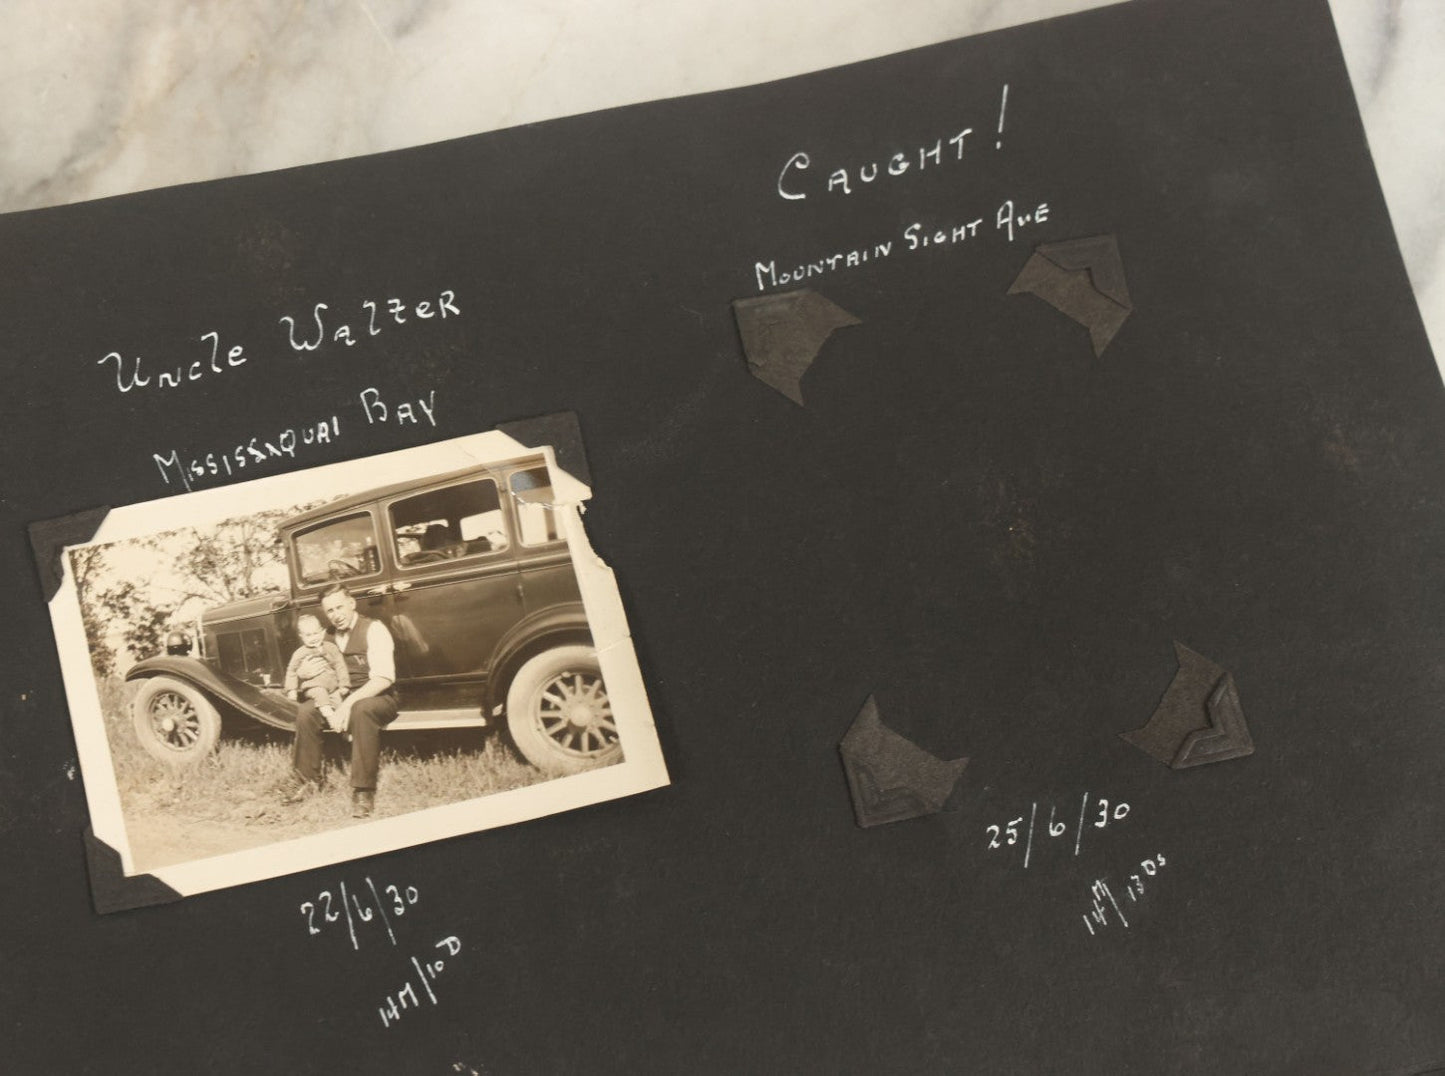 Uncle Walter
Mississaquai Bay
22/6/30
14M/10D
Caught!
Mountain Sight Ave
25/6/30
14M/13Ds